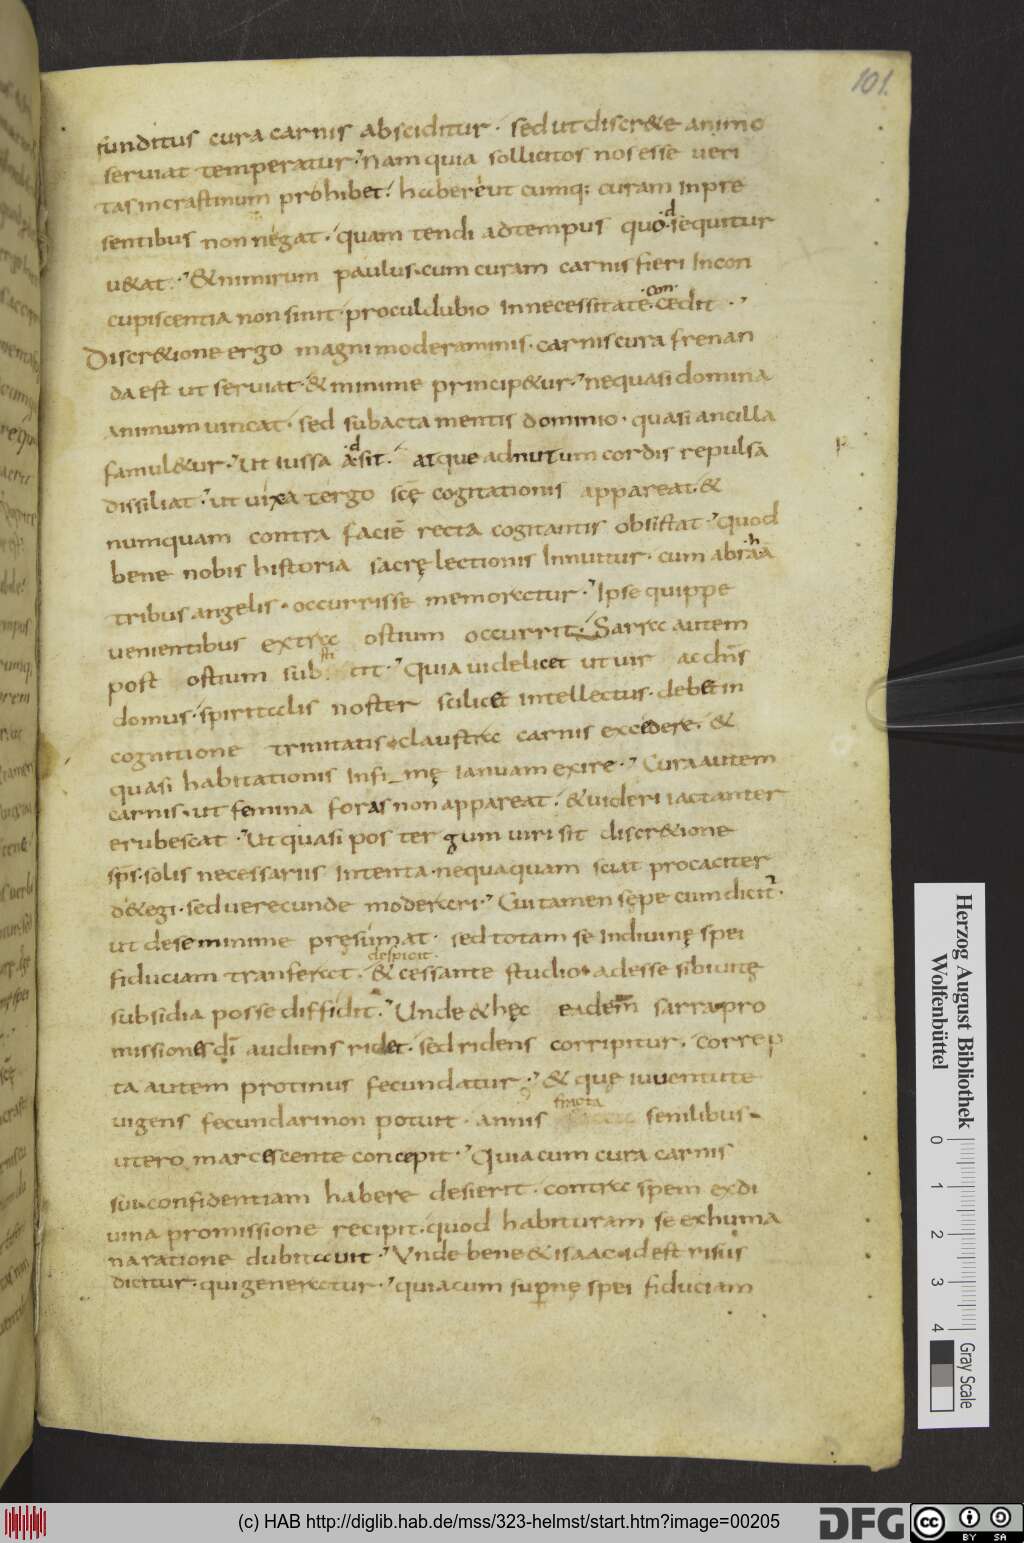 101.
funditus cura carnis absciditur. sed ut discr&e animo
serviat temperatur. Nam quia sollicitos nos esse veri
tas in crastinum prohibet. habere ut cumq; curam in pre
sentibus non negat. quam tendi ad tempus quod sequitur
u&at. & nimirum paulus. cum curam carnis fieri in con
cupiscentia non sinit. procul dubio in necessitate. concedit.
Discr&ione ergo magni moderaminis. carnis cura frenan
da est ut serviat. & minime princip&ur. nequasi domina
animum vincat. sed subacta mentis dominio. quasi ancilla
famul&ur. Ut iussa adsit. atque ad nutum cordis repulsa
dissiliat. ut vix a tergo scę cogitationis appareat. &
numquam contra faciē recta cogitantis obsistat. quod
bene nobis historia sacrę lectionis Innuitur. cum abrahā
tribus angelis. occurrisse memoratur. Ipse quippe
venientibus extra ostium occurrit. Sarra autem
post ostium substitit. Quia videlicet ut vir ac dn̄s
domus. spiritalis noster scilicet intellectus. debet in
cognitione trinitatis claustra carnis excedere. &
quasi habitationis infimę ianuam exire. Cura autem
carnis. ut femina foras non appareat. & videri iactanter
erubescat. Ut quasi pos ter gum viri sit discr&ione
sp̄s. solis necessariis intenta. nequaquam sciat procaciter
d&egi. sed verecunde moderari. Cui tamen sępe cum dicit̄.
ut de se minime pręsumat. sed totam se in divinę spei
despicit.
fiduciam tranferat. & cessante studio. adesse sibi vitę
subsidia posse diffidit. Unde & hęc eadem sarra pro
missiones dī audiens ridet. sed ridens corripitur. correp
ta autem protinus fecundatur. & quę iuventute
vigens fecundari non potuit. annis fracta senilibus
utero marcescente concepit. Quia cum cura carnis
sui confidentiam habere desierit. contra spem ex di
vina promissione recipit. quod habituram se ex huma
na ratione dubitavit. Unde bene & isaac id est risus
dicitur. qui generatur. quia cum supernę spei fiduciam
Herzog August Bibliothek
Wolfenbüttel
0 1 2 3 4
Gray Scale
(c) HAB http://diglib.hab.de/mss/323-helmst/start.htm?image=00205
DFG
cc BY SA